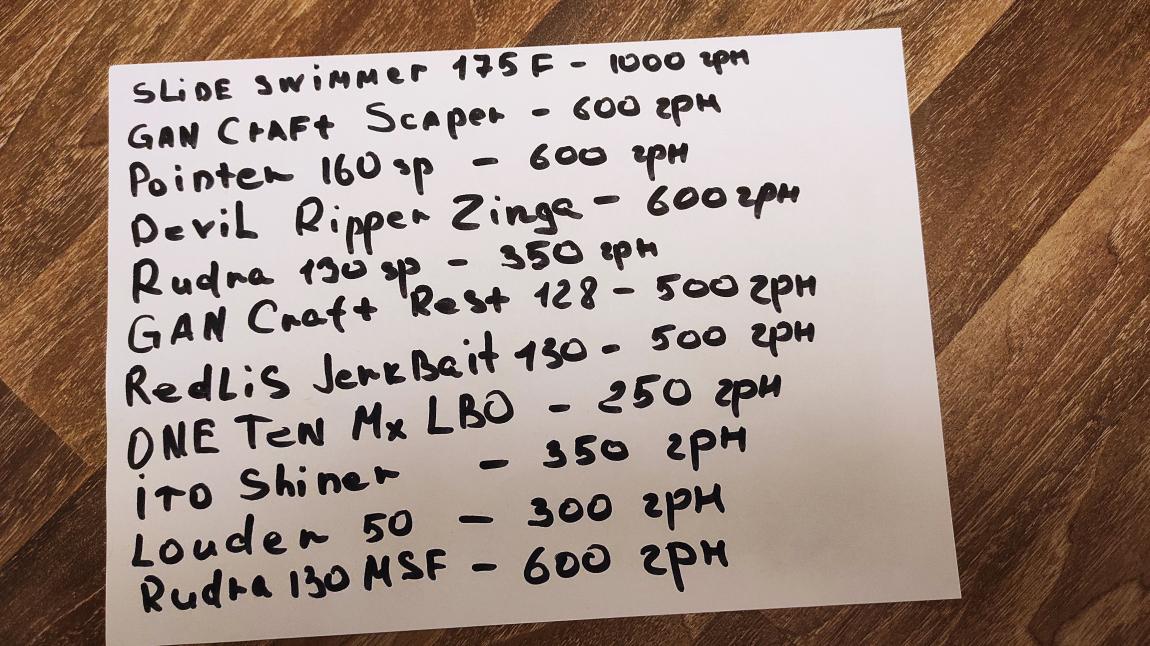 SLIDE SWIMMER 175 F - 1000 грн
GAN CRAFt Scaper - 600 грн
Pointer 160 sp - 600 грн
DeviL Ripper Zinga - 600 грн
Rudra 130 sp - 350 грн
GAN Craft Rest 128 - 500 грн
RedLiS JerkBait 130 - 500 грн
ONE TeN Mx LBO - 250 грн
iTO Shiner - 350 грн
Louder 50 - 300 грн
Rudra 130 MSF - 600 грн